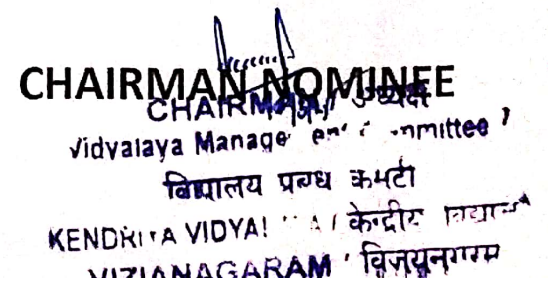 CHAIRMAN NOMINEE
CHAIRMAN अध्यक्ष
Vidyalaya Management Committee
विद्यालय प्रबन्ध कमेटी
KENDRIYA VIDYALAYA / केन्द्रीय विद्यालय
VIZIANAGARAM / विजयनगरम